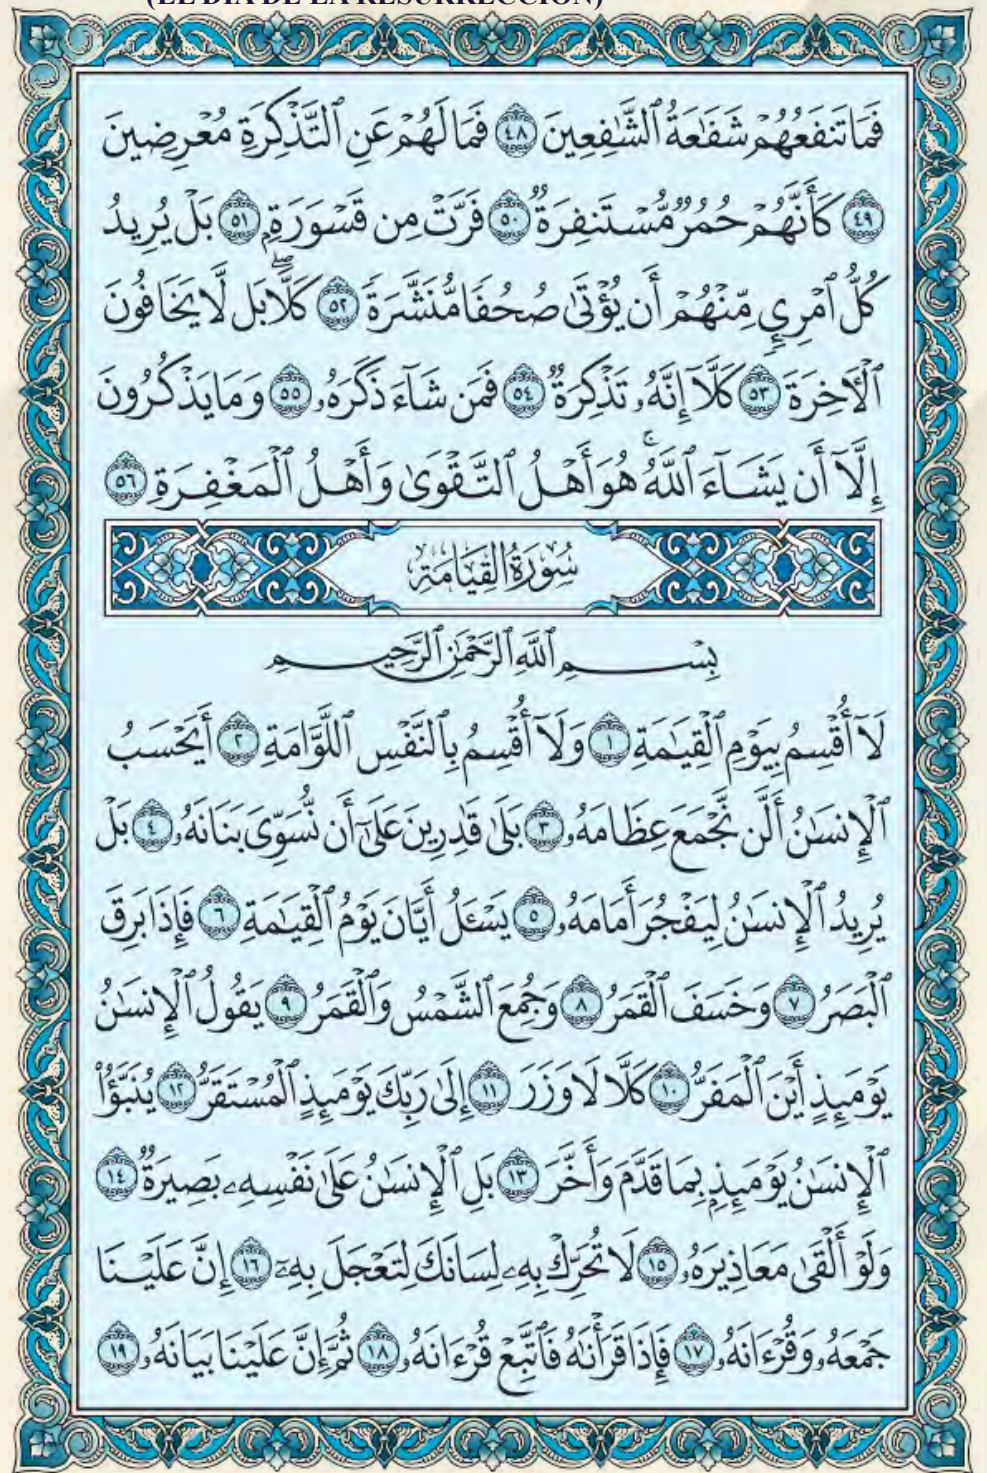 (EL DÍA DE LA RESURRECCIÓN)
فَمَا تَنفَعُهُمْ شَفَٰعَةُ ٱلشَّٰفِعِينَ ٤٨ فَمَا لَهُمْ عَنِ ٱلتَّذْكِرَةِ مُعْرِضِينَ
٤٩ كَأَنَّهُمْ حُمُرٌ مُّسْتَنفِرَةٌ ٥٠ فَرَّتْ مِن قَسْوَرَةٍۭ ٥١ بَلْ يُرِيدُ
كُلُّ ٱمْرِئٍ مِّنْهُمْ أَن يُؤْتَىٰ صُحُفًا مُّنَشَّرَةً ٥٢ كَلَّاۖ بَل لَّا يَخَافُونَ
ٱلْأٓخِرَةَ ٥٣ كَلَّآ إِنَّهُۥ تَذْكِرَةٌ ٥٤ فَمَن شَآءَ ذَكَرَهُۥ ٥٥ وَمَا يَذْكُرُونَ
إِلَّآ أَن يَشَآءَ ٱللَّهُۚ هُوَ أَهْلُ ٱلتَّقْوَىٰ وَأَهْلُ ٱلْمَغْفِرَةِ ٥٦
سُورَةُ القِيَامَةِ
بِسْمِ ٱللَّهِ ٱلرَّحْمَٰنِ ٱلرَّحِيمِ
لَآ أُقْسِمُ بِيَوْمِ ٱلْقِيَٰمَةِ ١ وَلَآ أُقْسِمُ بِٱلنَّفْسِ ٱللَّوَّامَةِ ٢ أَيَحْسَبُ
ٱلْإِنسَٰنُ أَلَّن نَّجْمَعَ عِظَامَهُۥ ٣ بَلَىٰ قَٰدِرِينَ عَلَىٰٓ أَن نُّسَوِّىَ بَنَانَهُۥ ٤ بَلْ
يُرِيدُ ٱلْإِنسَٰنُ لِيَفْجُرَ أَمَامَهُۥ ٥ يَسْـَٔلُ أَيَّانَ يَوْمُ ٱلْقِيَٰمَةِ ٦ فَإِذَا بَرِقَ
ٱلْبَصَرُ ٧ وَخَسَفَ ٱلْقَمَرُ ٨ وَجُمِعَ ٱلشَّمْسُ وَٱلْقَمَرُ ٩ يَقُولُ ٱلْإِنسَٰنُ
يَوْمَئِذٍ أَيْنَ ٱلْمَفَرُّ ١٠ كَلَّا لَا وَزَرَ ١١ إِلَىٰ رَبِّكَ يَوْمَئِذٍ ٱلْمُسْتَقَرُّ ١٢ يُنَبَّؤُا۟
ٱلْإِنسَٰنُ يَوْمَئِذٍۭ بِمَا قَدَّمَ وَأَخَّرَ ١٣ بَلِ ٱلْإِنسَٰنُ عَلَىٰ نَفْسِهِۦ بَصِيرَةٌ ١٤
وَلَوْ أَلْقَىٰ مَعَاذِيرَهُۥ ١٥ لَا تُحَرِّكْ بِهِۦ لِسَانَكَ لِتَعْجَلَ بِهِۦٓ ١٦ إِنَّ عَلَيْنَا
جَمْعَهُۥ وَقُرْءَانَهُۥ ١٧ فَإِذَا قَرَأْنَٰهُ فَٱتَّبِعْ قُرْءَانَهُۥ ١٨ ثُمَّ إِنَّ عَلَيْنَا بَيَانَهُۥ ١٩